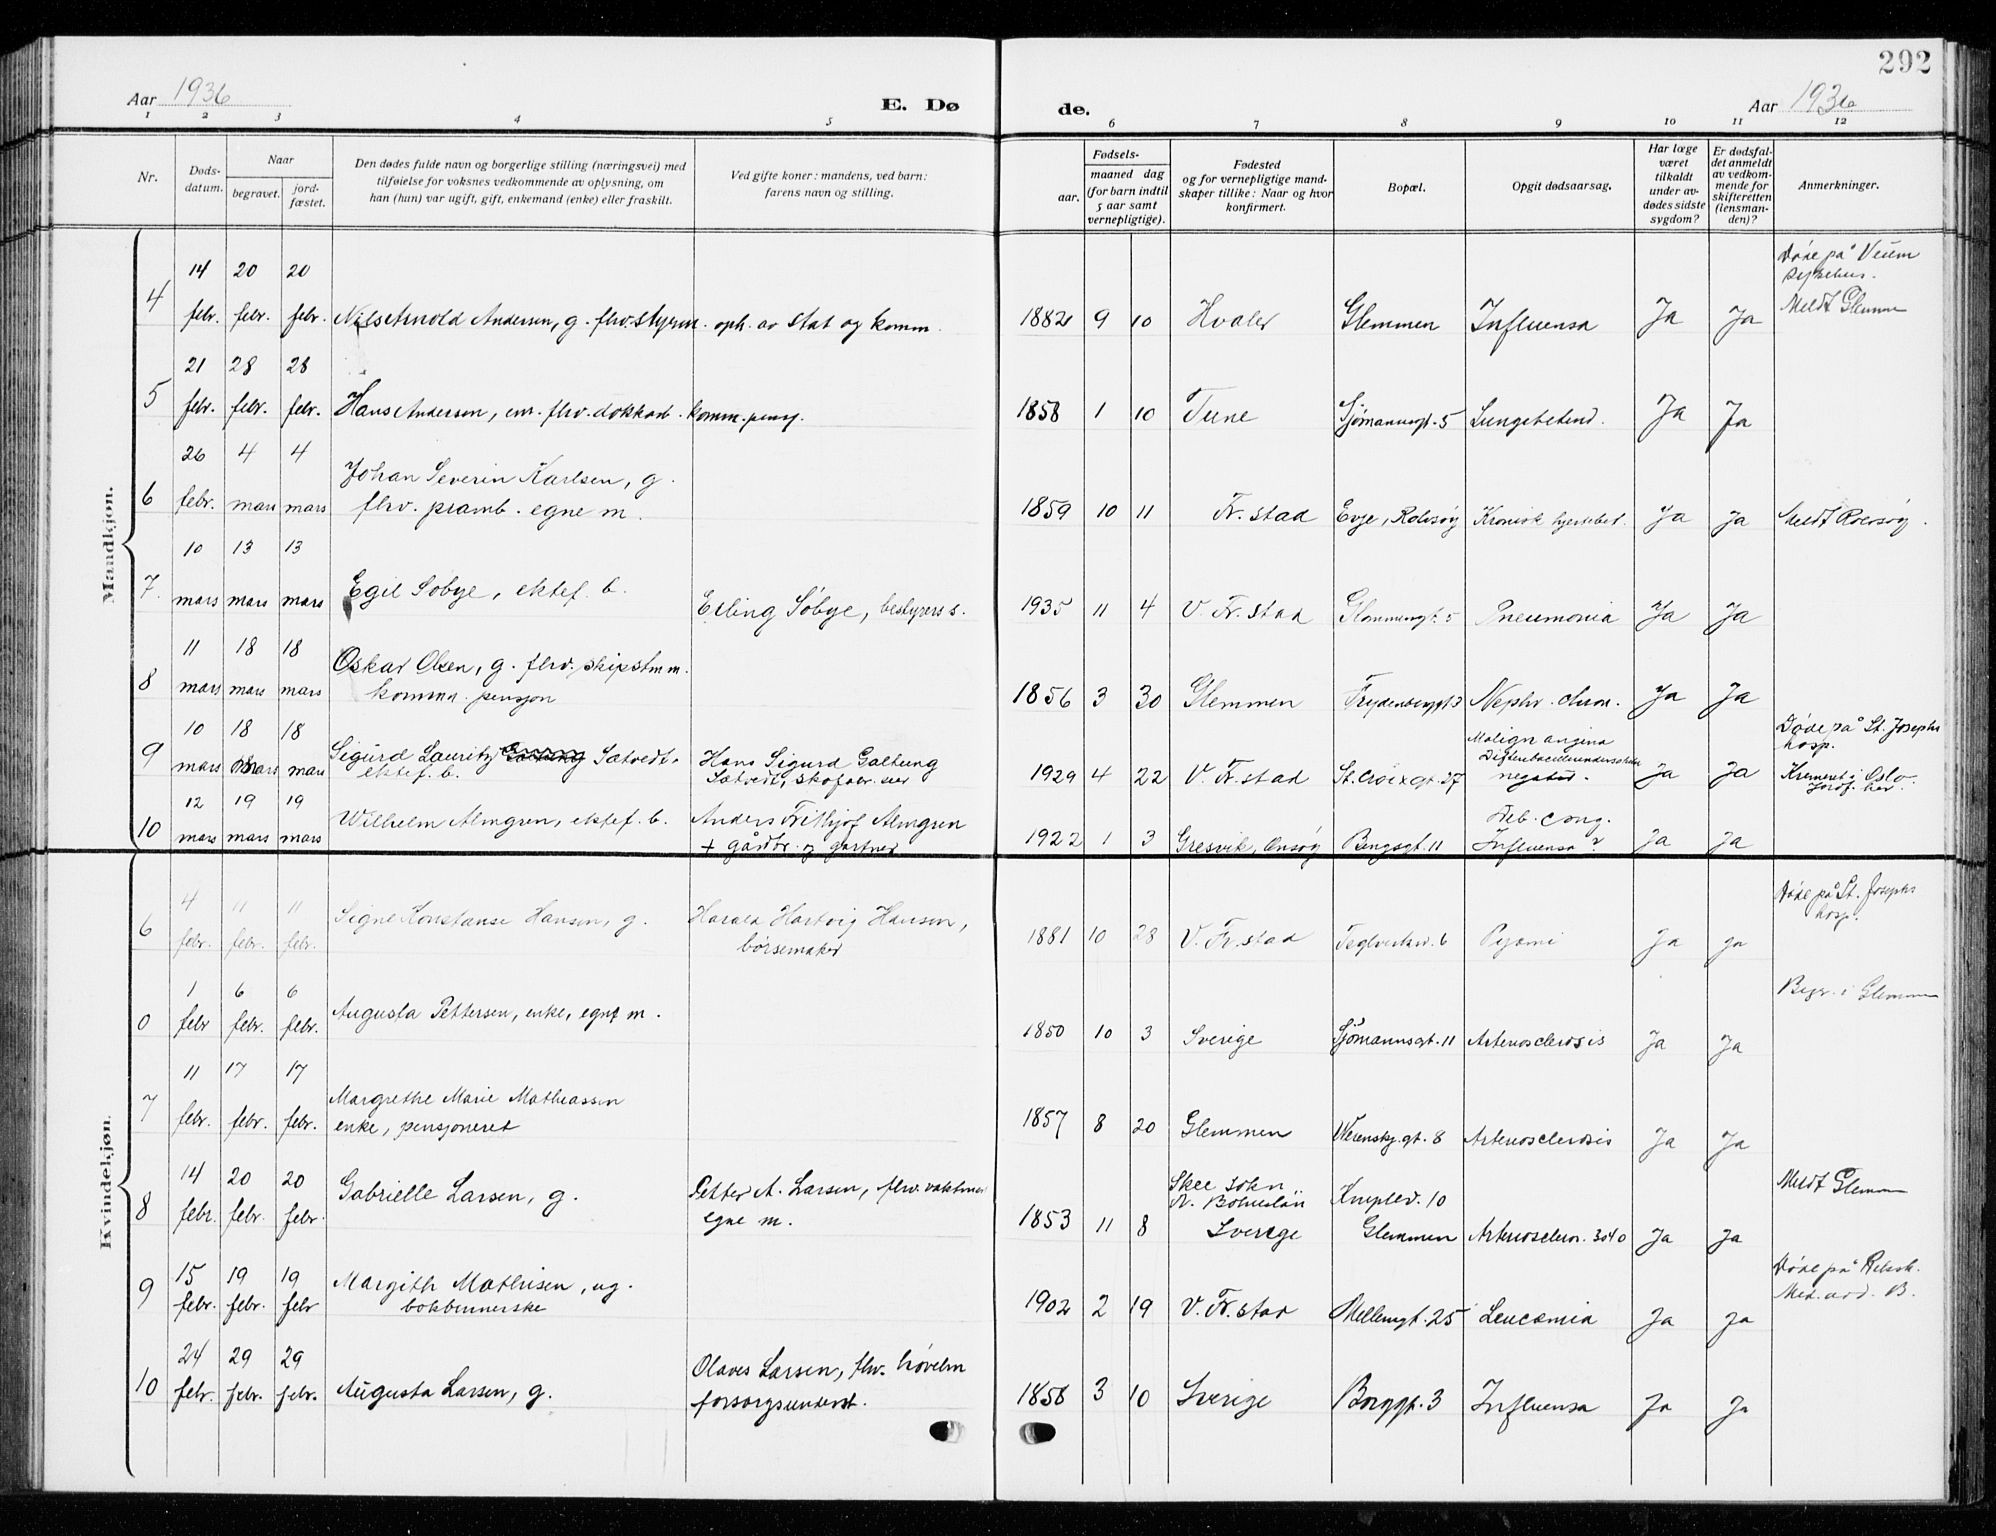 292
Aar 1936
E. Dø
de.
Aar 1936
1 2 3 4 5 6 7 8 9 10 11 12
Nr.
Døds-
datum.
Naar
begravet.
jord-
fæstet.
Den dødes fulde navn og borgerlige stilling (næringsvei) med
tilføielse for voksnes vedkommende av oplysning, om
han (hun) var ugift, gift, enkemand (enke) eller fraskilt.
Ved gifte koner: mandens, ved barn:
farens navn og stilling.
Fødsels-
aar.
maaned dag
(for barn indtil
5 aar samt
vernepligtige).
Fødested
og for vernepligtige mand-
skaper tillike: Naar og hvor
konfirmert.
Bopæl.
Opgit dødsaarsag.
Har læge
været
tilkaldt
under av-
dødes sidste
sygdom?
Er dødsfal-
det anmeldt
av vedkom-
mende for
skifteretten
(lensman-
den)?
Anmerkninger.
Mandkjøn.
14 20 20
Døde på Veum
sykehus.
4 febr. febr. febr. Nils Arnold Andersen, g. fhv. styrm. oph. av stat og komm. 1882 9 10 Hvaler Glemmen Influensa Ja Ja Meldt Glemm
21 28 28
5 febr. febr. febr. Hans Anderson, em. fhv. dokkarb. komm. pensj. 1858 1 10 Tune Sjømannsgt. 5 Lungebetend. Ja Ja
26 4 4
Johan Severin Karlsen, g.
6 febr. mars mars fhv. pramb. egne m. 1859 10 11 Fr.stad Evje, Rolvsøy Kronisk hjertebet. Ja Ja Meldt Rolvsøy.
10 13 13
7. mars mars mars Egil Søbye, ektef. b. Erling Søbye, bestyrers s. 1935 11 4 V. Fr.stad Glommengt. 5 Pneumonia Ja Ja
11 18 18
Oskar Olsen, g. fhv. skipstm m.
8 mars mars mars komm. pensjon 1856 3 30 Glemmen Frydenberggt 3 Nephr. chron. Ja Ja
10 18 18
Malign angina
Døde på St. Josephs
hosp.
9 mars mars mars Sigurd Lauritz Sætvedt, Hans Sigurd Galtung
ektef. b. Sætvedt, skofabr. eier 1929 4 22 V. Fr.stad St. Croixgt. 27 negativ. Ja Ja Kremert i Oslo.
Jordf. her.
12 19 19
Wilhelm Almgren, ektef. b. Anders Frithjof Almgren
Deb. cong.
10 mars mars mars + gårdbr. og gartner 1922 1 3 Gresvik, Onsøy Bingsgt. 11 Influensa? Ja Ja
Kvindekjøn.
4 11 11
Døde på St. Josephs
hosp.
6 febr. febr. febr. Signe Konstanse Hansen, g. Harald Hartvig Hansen,
børsemaker 1881 10 28 V. Fr.stad Teglverksv. 6 Pyæmi Ja Ja
1 6 6
Begr. i Glemmen
0 febr febr. febr. Augusta Pettersen, enke, egne m. 1850 10 3 Sverige Sjømannsgt. 11 Arteriosclerosis Ja Ja
11 17 17
Margrethe Marie Mathiassen
7 febr. febr. febr. enke, pensjoneret 1857 8 20 Glemmen Werenskj.gt. 8 Arteriosclerosis Ja Ja
14 20 20
Skee sokn
Gabrielle Larsen, g. Petter A. Larsen, fhv. vaktm. N. Bohuslän Kniplev. 10 Meldt Glemm
8 febr. febr. febr. egne m. 1853 11 8 Sverige Glemmen Arterioscleros. 3040 Ja Ja
15 19 19
Døde på Riksh.
Med. avd. B.
9 febr. febr. febr Margith Mathisen, ug.
bokbinnerske 1902 2 19 V. Fr.stad Mellemgt. 25 Leucæmia Ja Ja
24 29 29
Olaves Larsen, fhv. høvelm
10 febr. febr. febr. Augusta Larsen, g. forsorgsunderst. 1858 3 10 Sverige Borggt. 3 Influensa Ja Ja